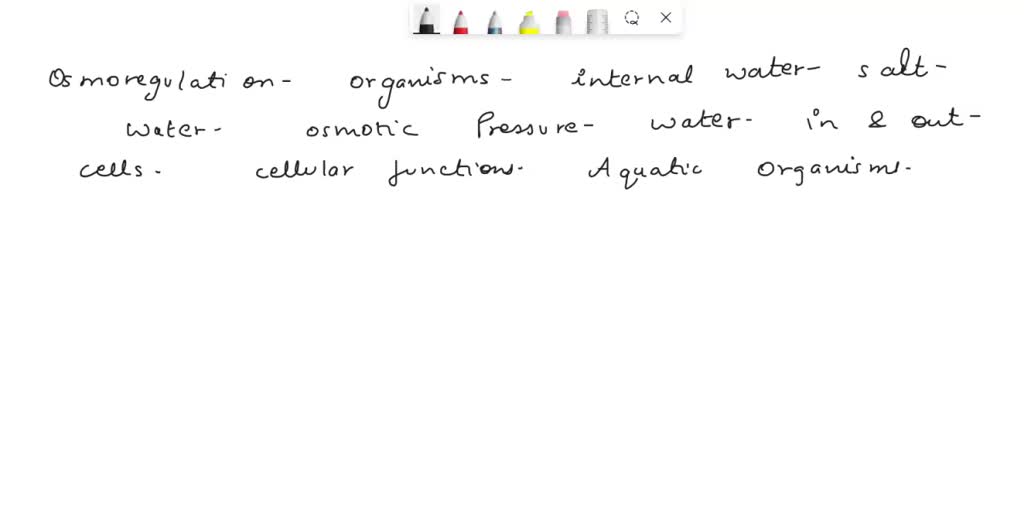 Osmoregulation- organisms- internal water- salt-
water- osmotic Pressure- water- in & out-
cells. cellular functions. Aquatic organisms.